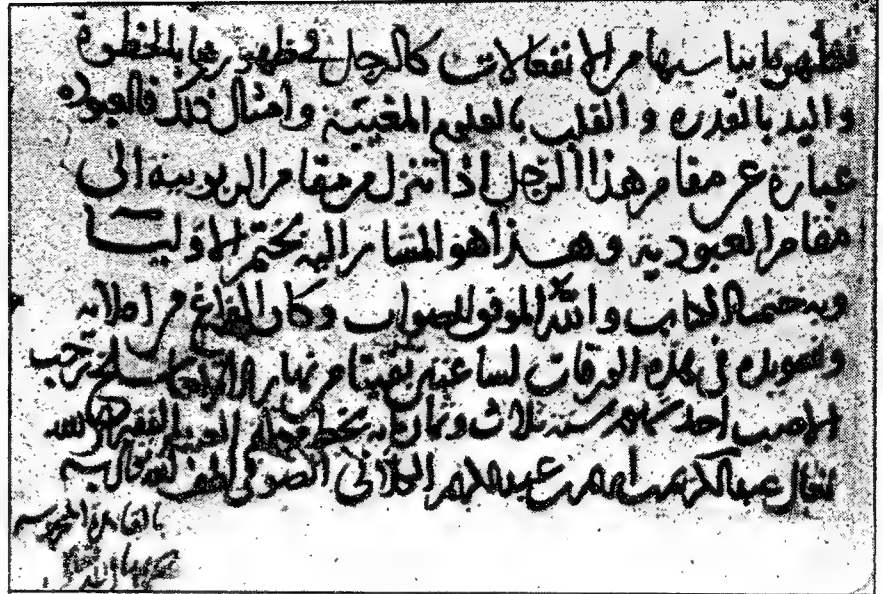 فتظهر ما يناسبها من الانفعالات كالرجل في ظهورها بالخطوة
واليد بالقدرة والقلب بالعلوم المغيبة وأمثال ذلك فالعبودة
عبارة عن مقام هذا الرجل إذا تنزل من مقام الربوبية إلى
مقام العبودية وهذا هو المشار إليه بختم الأوليا
وبه ختمنا الكتاب والله الموفق للصواب وكان الفراغ من املايه
في هذه الورقات لساعتين بقيتا من نهار سلخ رجب
احد شهور سنة ثلاث وثمان بخط الفقير إلى الله
تعالى عبد الكريم بن ابراهيم بن عبد الكريم الكيلاني الصوفي لطف الله به
بالقاهرة المحروسة